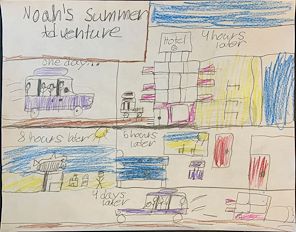 Noah's Summer
Adventure
one day...
Hotel
4 hours
later
8 hours later
6 hours
later
4 days
later